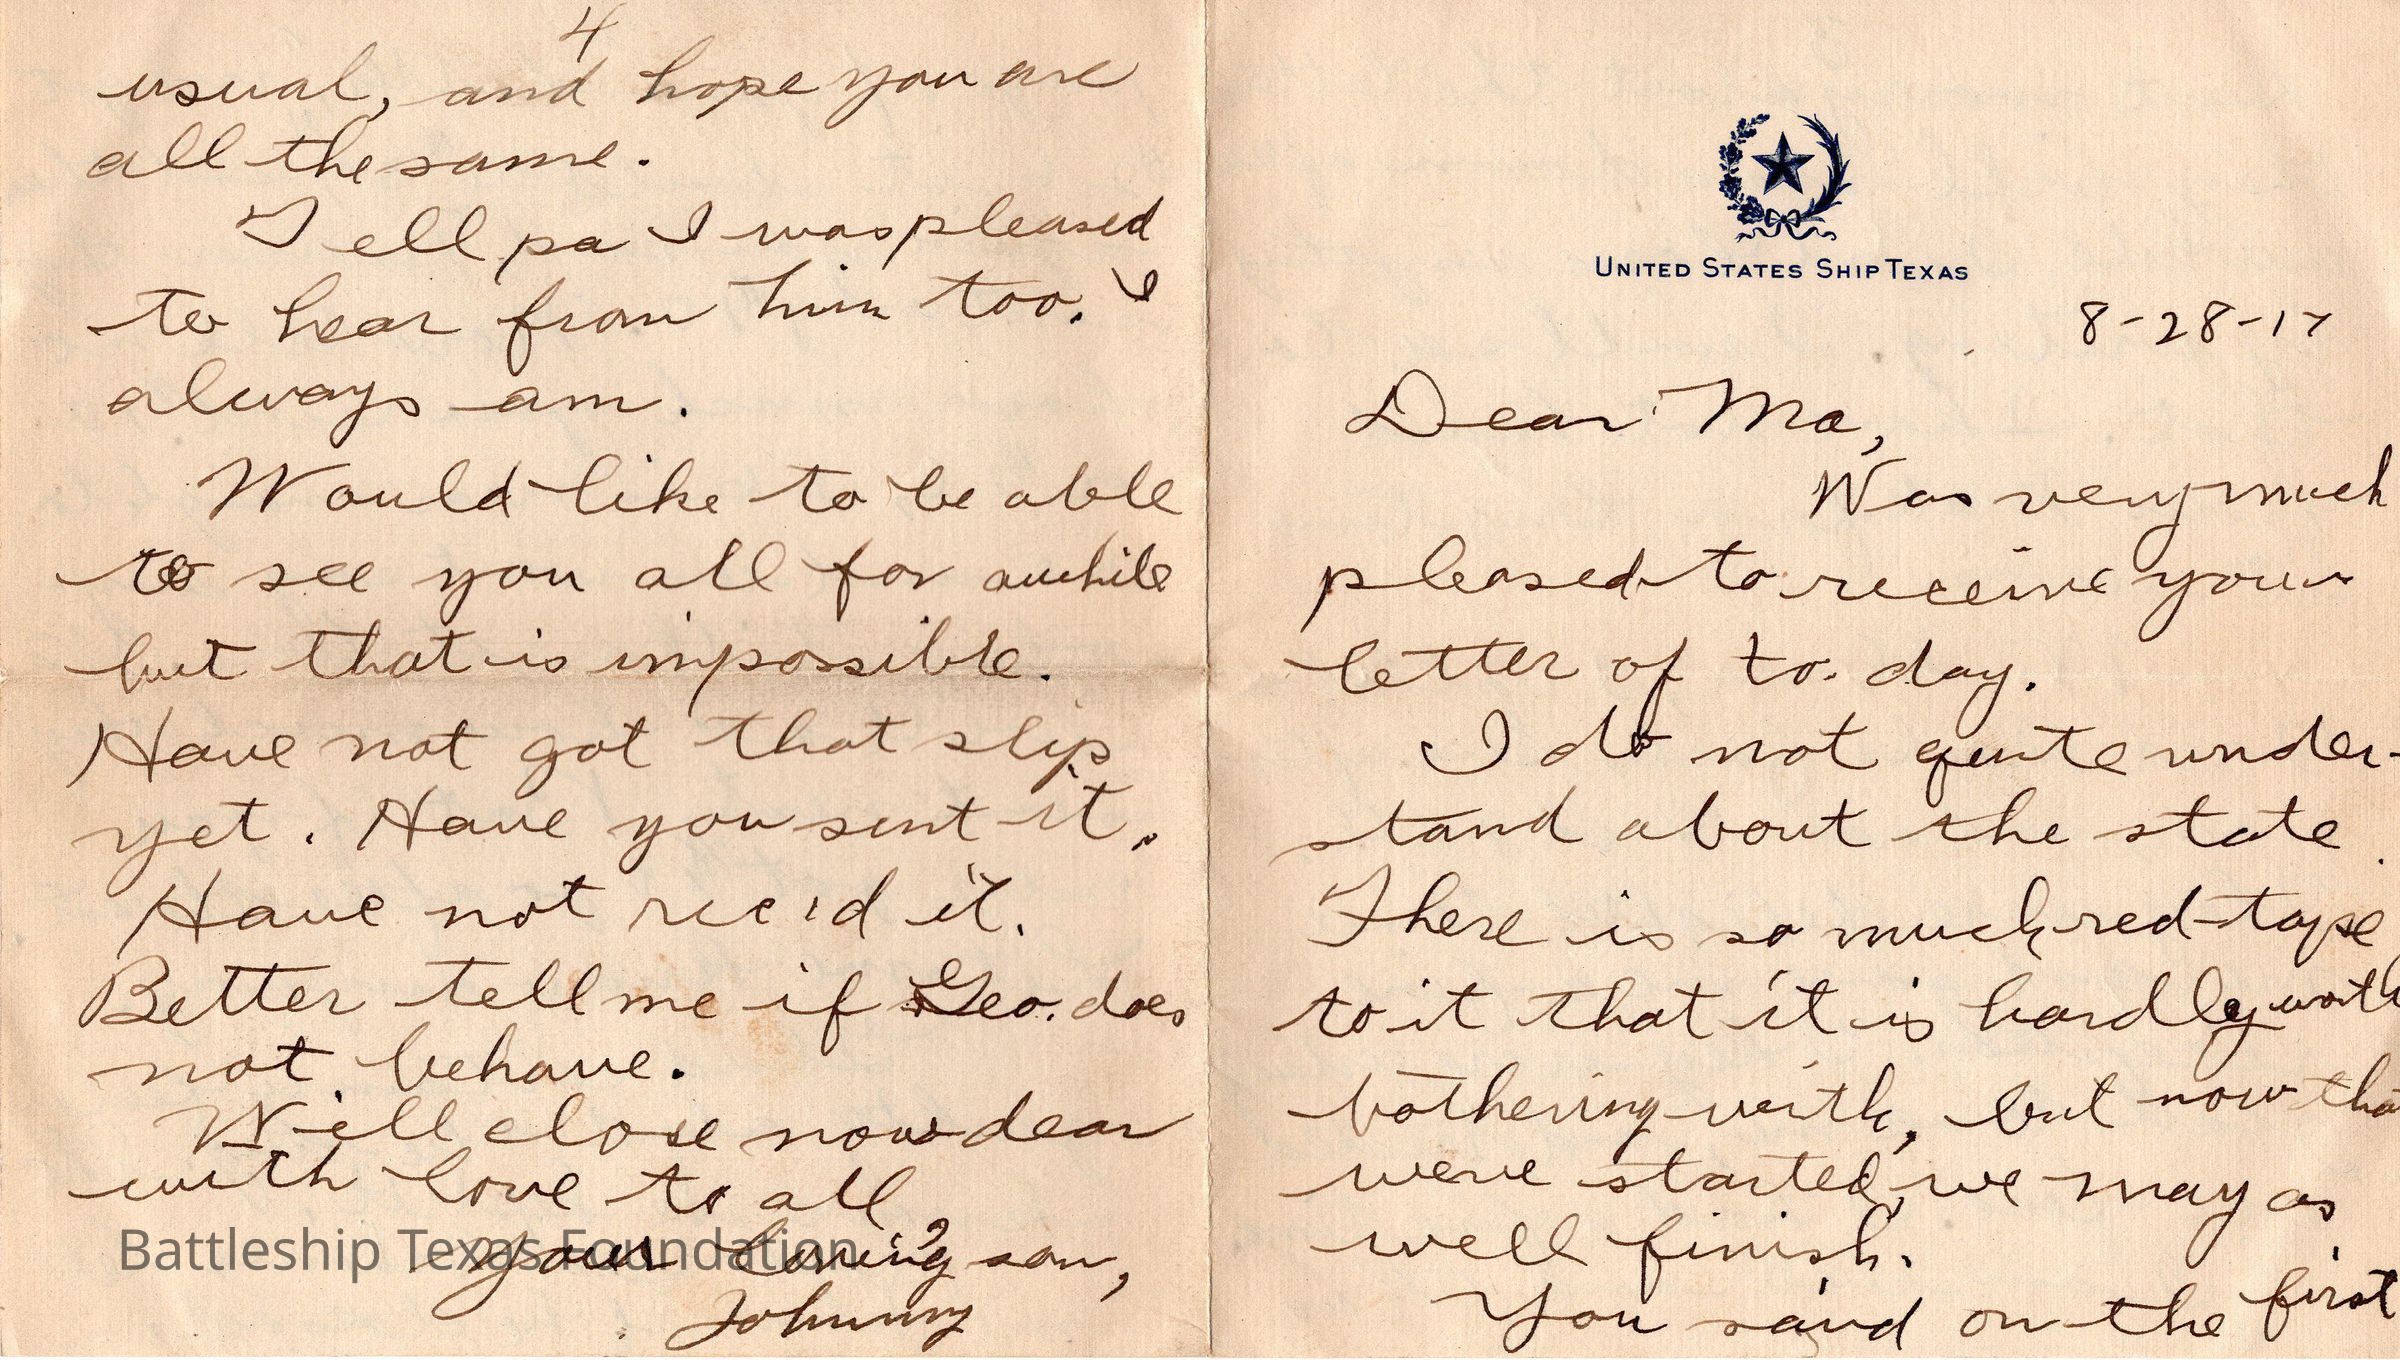 4
usual, and hope you are
all the same.
Tell pa I was pleased
to hear from him too. I
always am.
Would like to be able
to see you all for awhile
but that is impossible.
Have not got that slip
yet. Have you sent it.
Have not rec'd it.
Better tell me if Geo. does
not behave.
Will close now dear
with love to all,
Your loving son,
Johnny
Battleship Texas Foundation
UNITED STATES SHIP TEXAS
8-28-17
Dear Ma,
Was very much
pleased to receive your
letter of to-day.
I do not quite under-
stand about the state.
There is so much red-tape
to it that it is hardly worth
bothering with, but now tha
weve started, we may as
well finish.
You said on the first